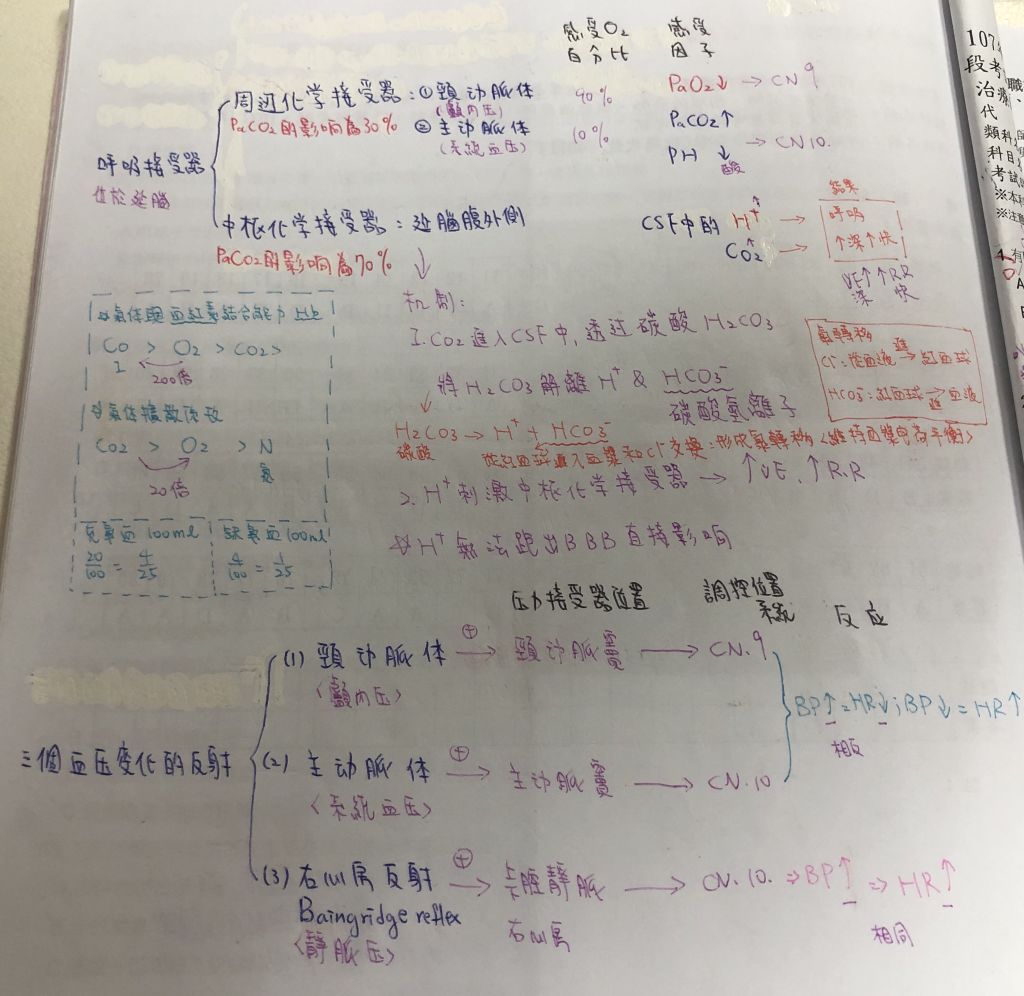 感受O₂ 感受
百分比 因子
周边化学接受器：① 頸动脈体 90% PaO₂↓ → CN 9
(顱內压)
PaCO₂的影响為30% ② 主动脈体 10% PaCO₂↑
(系統血压) PH ↓ → CN 10.
酸
呼吸接受器
位於延腦
中枢化学接受器：延腦腹外側 CSF中的 H⁺↑ →
CO₂↑ →
結果
呼吸
↑深↑快
VE↑↑RR
深 快
PaCO₂的影响為70%
机制：
1. CO₂進入CSF中，透过碳酸H₂CO₃
將H₂CO₃解離H⁺ & HCO₃⁻
碳酸氢離子
H₂CO₃ → H⁺ + HCO₃⁻
碳酸
從紅血球進入血漿和Cl⁻交換：形成氯轉移<維持血漿电荷平衡>
氯轉移
Cl⁻：從血液 進→ 紅血球
HCO₃⁻：紅血球 進→ 血液
2. H⁺刺激中枢化学接受器 → ↑VE、↑R.R
☆H⁺無法跑出BBB直接影响
☆氣体與血紅素結合能力 Hb
CO > O₂ > CO₂>
200倍
☆氣体擴散係数
CO₂ > O₂ > N
氮
20倍
充氧血100ml 缺氧血100ml
20/100 = 4/25 4/100 = 1/25
压力接受器位置 調控位置 反应
系統
三個血压变化的反射
(1) 頸动脈体 ⊕→ 頸动脈竇 → CN.9
<顱內压>
BP↑=HR↓；BP↓=HR↑
相反
(2) 主动脈体 ⊕→ 主动脈竇 → CN.10
<系統血压>
(3) 右心房反射 ⊕→ 腔靜脈 → CN.10. ⇒BP↑ ⇒ HR↑
Baingridge reflex 右心房 相同
<靜脈压>
107
段考
治療
代
類科
科目
考試
※本科
※注意